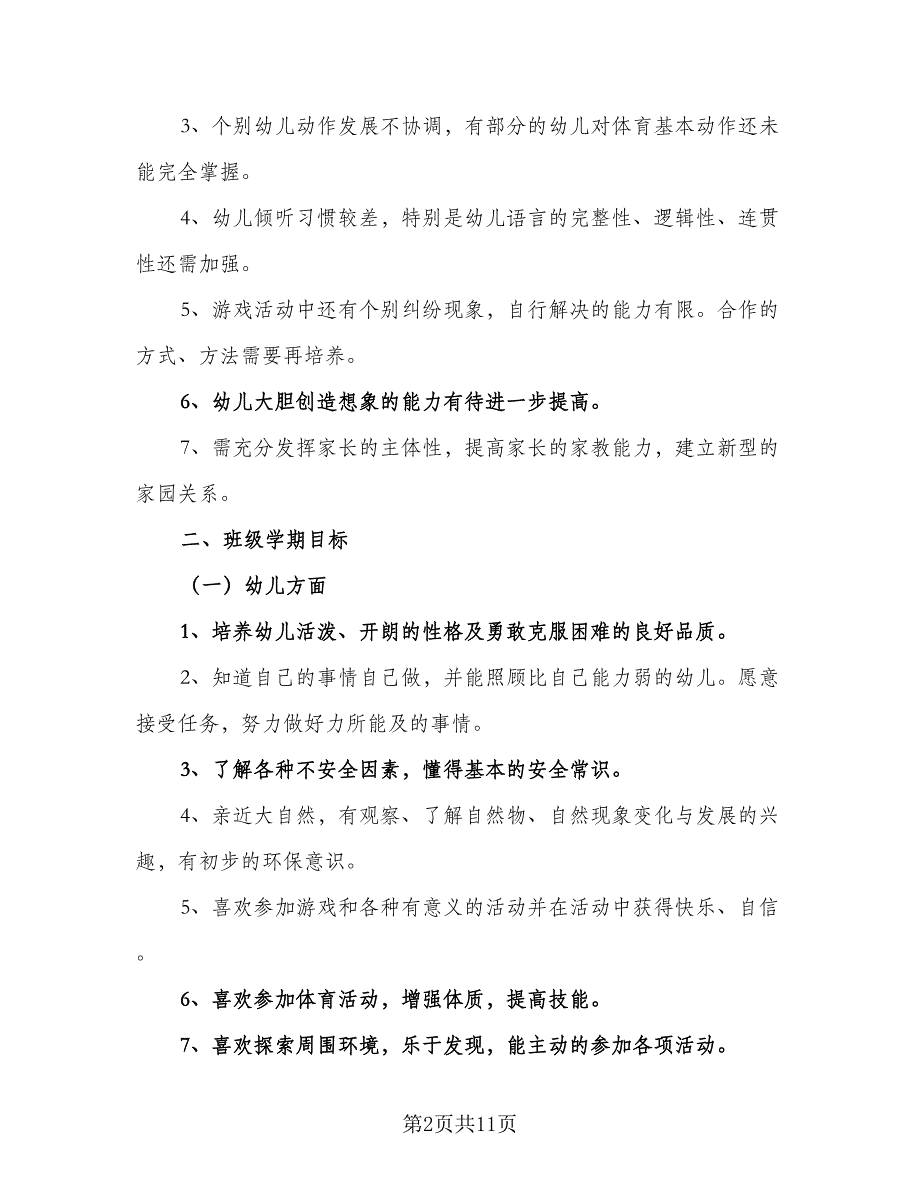 3、个别幼儿动作发展不协调，有部分的幼儿对体育基本动作还未
能完全掌握。
4、幼儿倾听习惯较差，特别是幼儿语言的完整性、逻辑性、连贯
性还需加强。
5、游戏活动中还有个别纠纷现象，自行解决的能力有限。合作的
方式、方法需要再培养。
6、幼儿大胆创造想象的能力有待进一步提高。
7、需充分发挥家长的主体性，提高家长的家教能力，建立新型的
家园关系。
二、班级学期目标
（一）幼儿方面
1、培养幼儿活泼、开朗的性格及勇敢克服困难的良好品质。
2、知道自己的事情自己做，并能照顾比自己能力弱的幼儿。愿意
接受任务，努力做好力所能及的事情。
3、了解各种不安全因素，懂得基本的安全常识。
4、亲近大自然，有观察、了解自然物、自然现象变化与发展的兴
趣，有初步的环保意识。
5、喜欢参加游戏和各种有意义的活动并在活动中获得快乐、自信
。
6、喜欢参加体育活动，增强体质，提高技能。
7、喜欢探索周围环境，乐于发现，能主动的参加各项活动。
第2页共11页